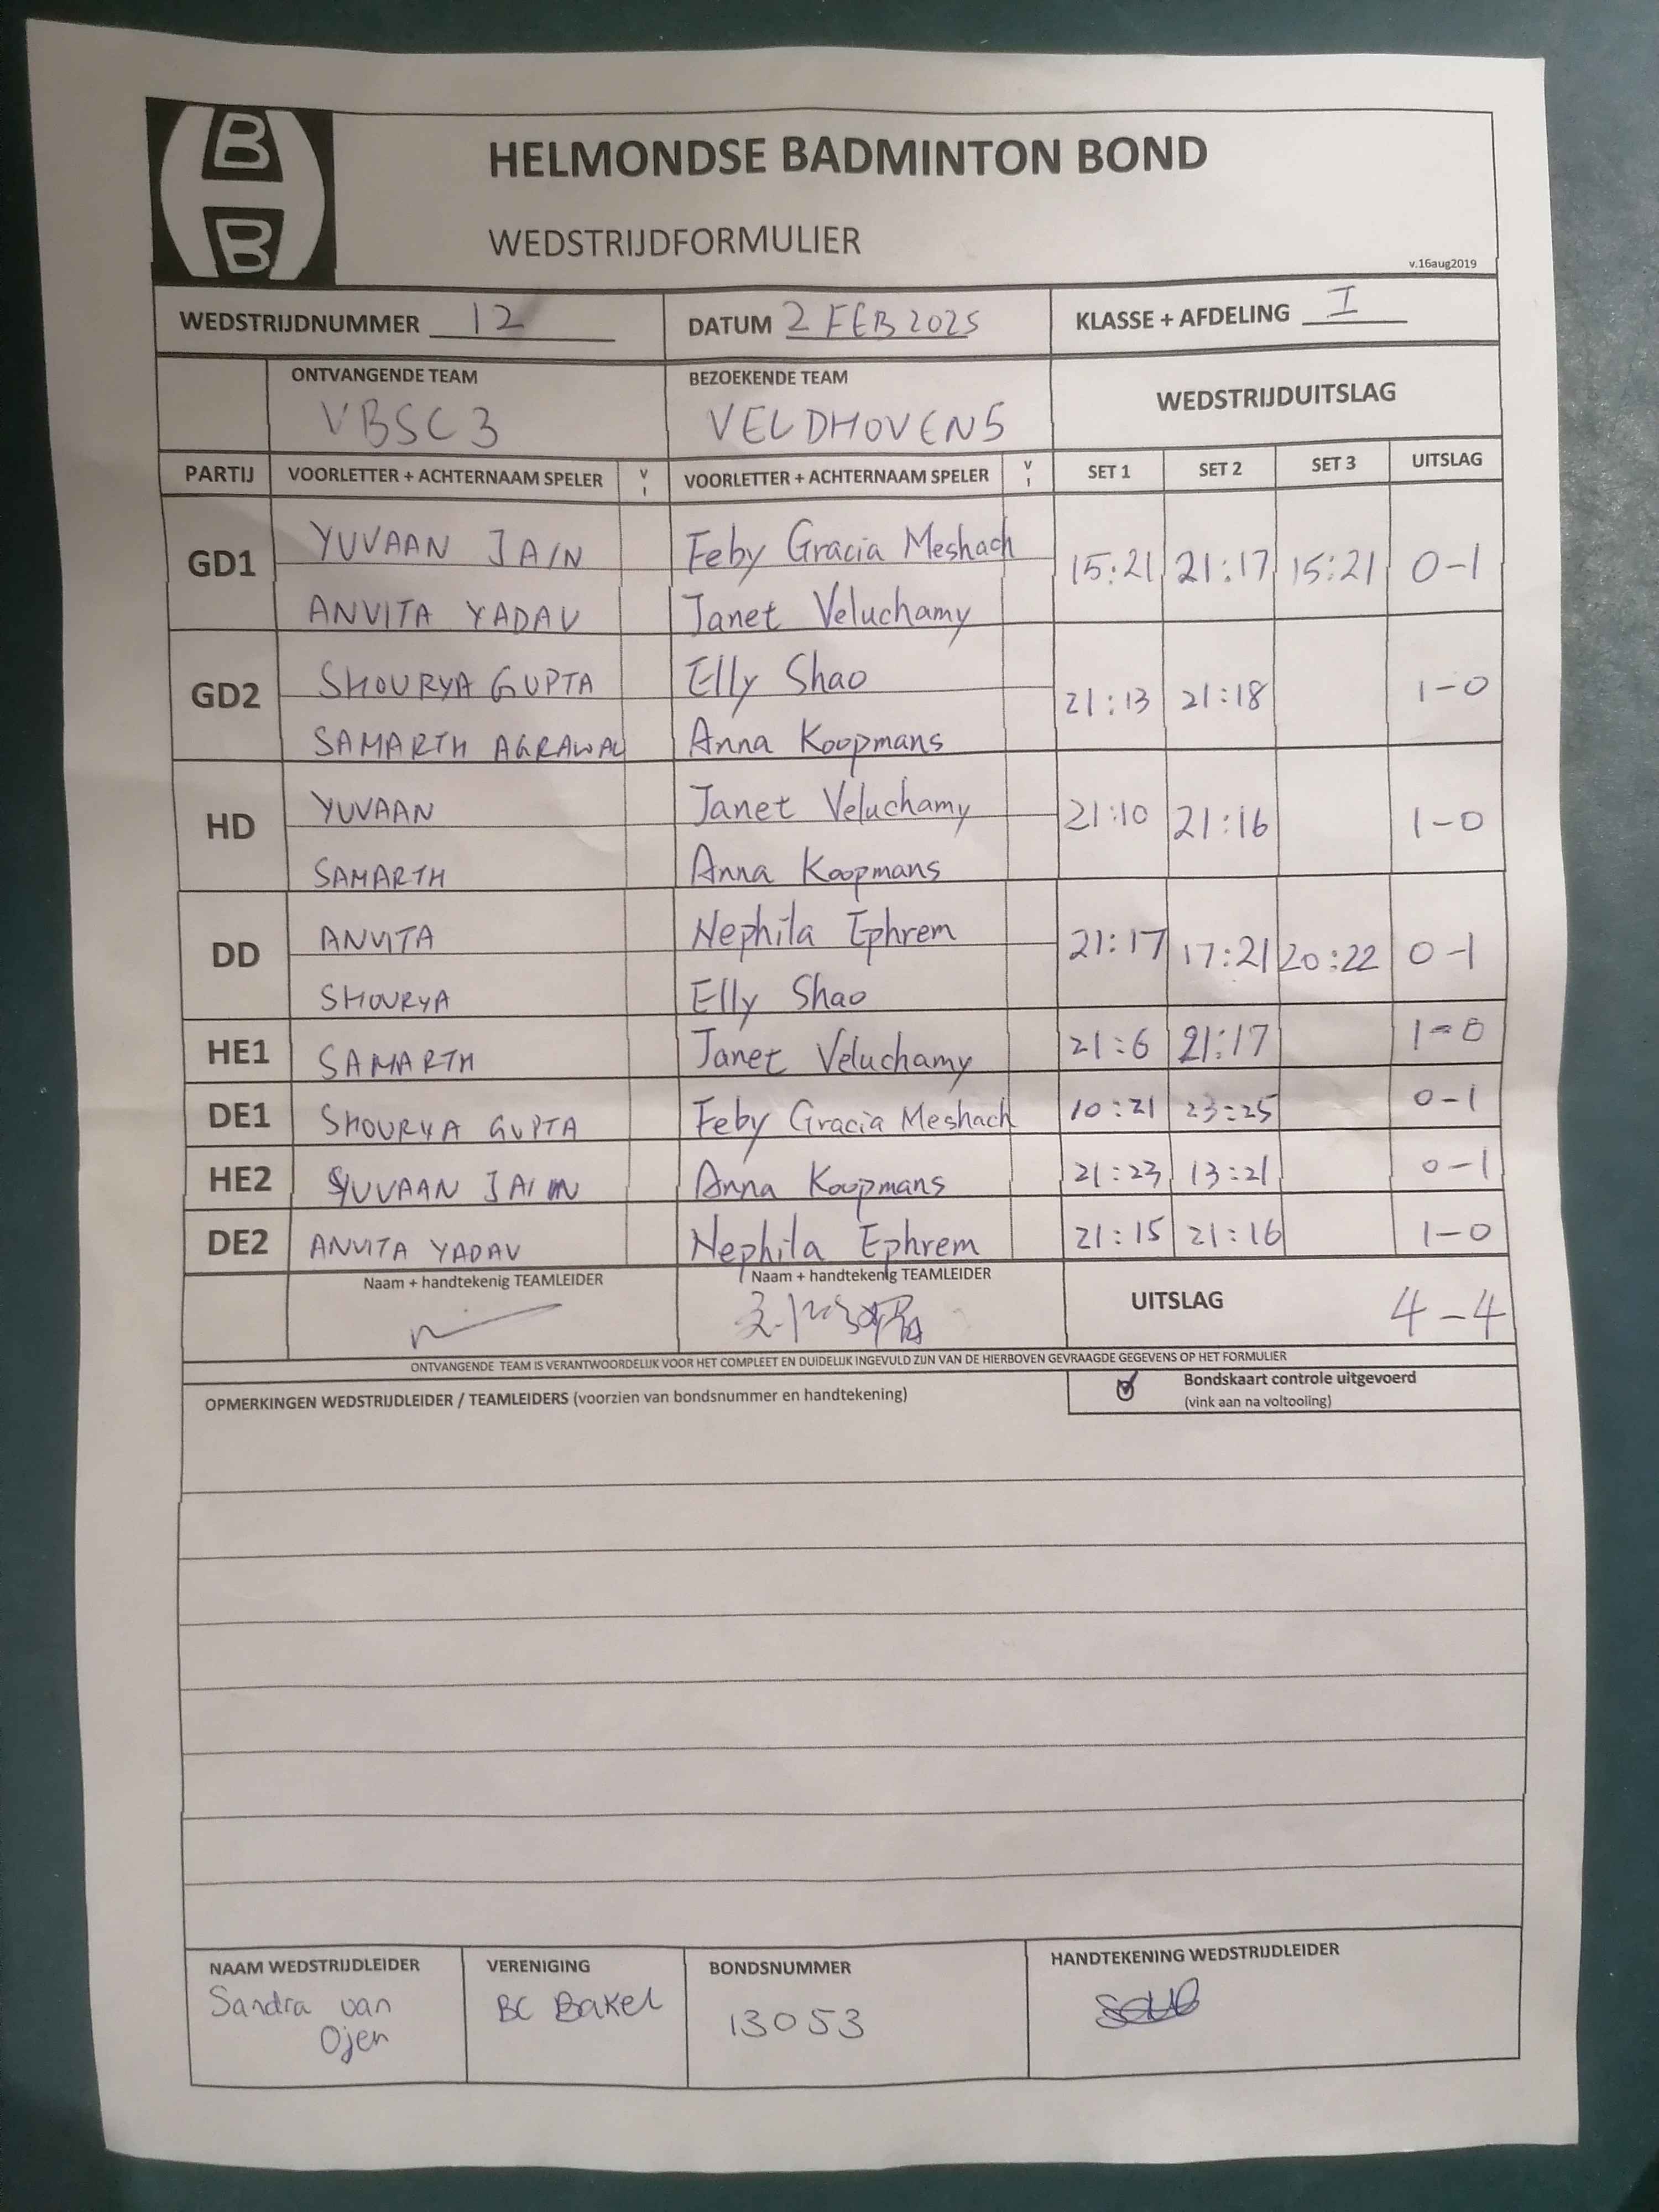 B
B
HELMONDSE BADMINTON BOND
WEDSTRIJDFORMULIER
v.16aug2019
WEDSTRIJDNUMMER 12 DATUM 2 FEB 2025 KLASSE + AFDELING I
ONTVANGENDE TEAM BEZOEKENDE TEAM WEDSTRIJDUITSLAG
VBSC 3 VELDHOVEN 5
PARTIJ VOORLETTER + ACHTERNAAM SPELER V I VOORLETTER + ACHTERNAAM SPELER V I SET 1 SET 2 SET 3 UITSLAG
GD1 YUVAAN JAIN Feby Gracia Meshach 15:21 21:17 15:21 0-1
ANVITA YADAV Janet Veluchamy
GD2 SHOURYA GUPTA Elly Shao 21:13 21:18 1-0
SAMARTH AGRAWAL Anna Koopmans
HD YUVAAN Janet Veluchamy 21:10 21:16 1-0
SAMARTH Anna Koopmans
DD ANVITA Nephila Ephrem 21:17 17:21 20:22 0-1
SHOURYA Elly Shao
HE1 SAMARTH Janet Veluchamy 21:6 21:17 1-0
DE1 SHOURYA GUPTA Feby Gracia Meshach 10:21 23:25 0-1
HE2 YUVAAN JAIN Anna Koopmans 21:23 13:21 0-1
DE2 ANVITA YADAV Nephila Ephrem 21:15 21:16 1-0
Naam + handtekenig TEAMLEIDER Naam + handtekenig TEAMLEIDER UITSLAG 4-4
ONTVANGENDE TEAM IS VERANTWOORDELIJK VOOR HET COMPLEET EN DUIDELIJK INGEVULD ZIJN VAN DE HIERBOVEN GEVRAAGDE GEGEVENS OP HET FORMULIER
OPMERKINGEN WEDSTRIJDLEIDER / TEAMLEIDERS (voorzien van bondsnummer en handtekening) Bondskaart controle uitgevoerd
(vink aan na voltooiing)
NAAM WEDSTRIJDLEIDER VERENIGING BONDSNUMMER HANDTEKENING WEDSTRIJDLEIDER
Sandra van BC Bakel 13053
Ojen